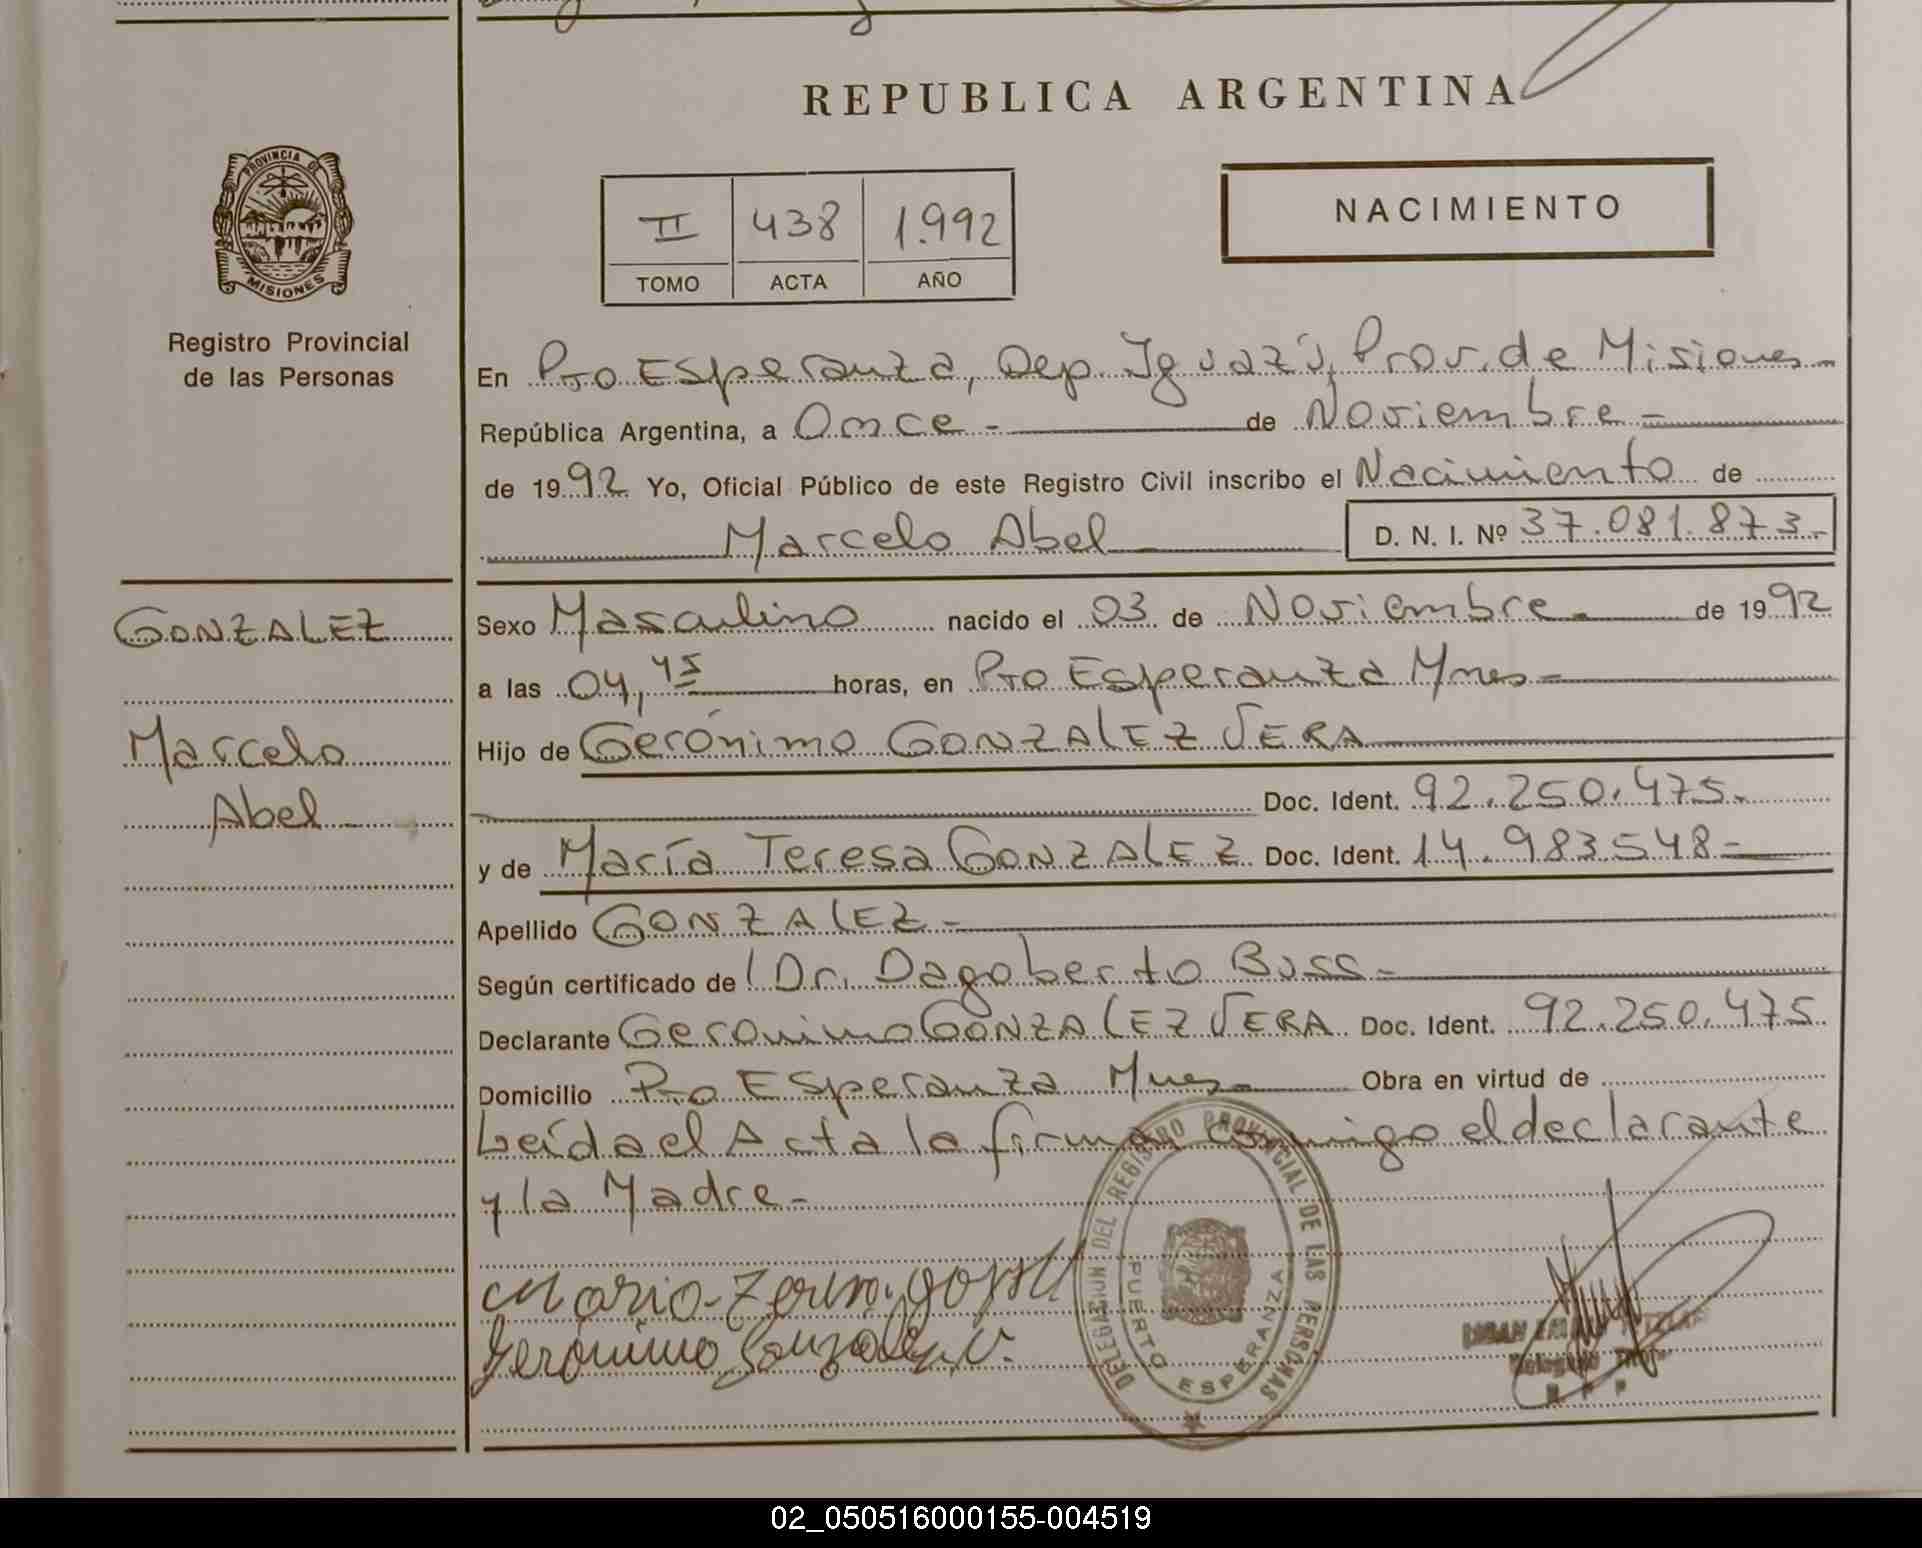 REPUBLICA ARGENTINA
PROVINCIA DE
MISIONES
Registro Provincial
de las Personas
II 438 1.992
TOMO ACTA AÑO
NACIMIENTO
En Pto Esperanza, Dep. Iguazú, Prov. de Misiones
República Argentina, a Once - de Noviembre -
de 1992 Yo, Oficial Público de este Registro Civil inscribo el Nacimiento de
Marcelo Abel D. N. I. Nº 37.081.873.-
GONZALEZ
Marcelo
Abel
Sexo Masculino nacido el 03 de Noviembre de 1992
a las 04,45 horas, en Pto Esperanza Mnes
Hijo de Gerónimo GONZALEZ VERA
Doc. Ident. 92.250.475.
y de María Teresa GONZALEZ Doc. Ident. 14.983.548-
Apellido GONZALEZ -
Según certificado de l Dr. Dagoberto Buss -
Declarante Geronimo GONZALEZ VERA Doc. Ident. 92.250.475
Domicilio Pto Esperanza Mnes Obra en virtud de
Leída el Acta la firman conmigo el declarante
y la Madre -
Gerónimo Gonzalez V.
DELEGACION DEL REGISTRO PROVINCIAL DE LAS PERSONAS
PUERTO ESPERANZA
02_050516000155-004519